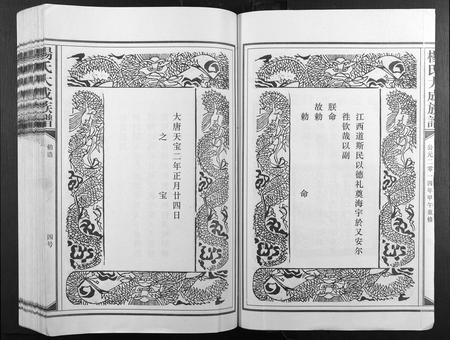 楊氏大成族譜
公元二零一四年甲午重修
江西道斯民以德礼奠海宇於又安尔
徃钦哉以副
朕命
故勅
勅 命
大唐天宝二年正月廿四日
之 宝
楊氏大成族譜
勅诰
四号